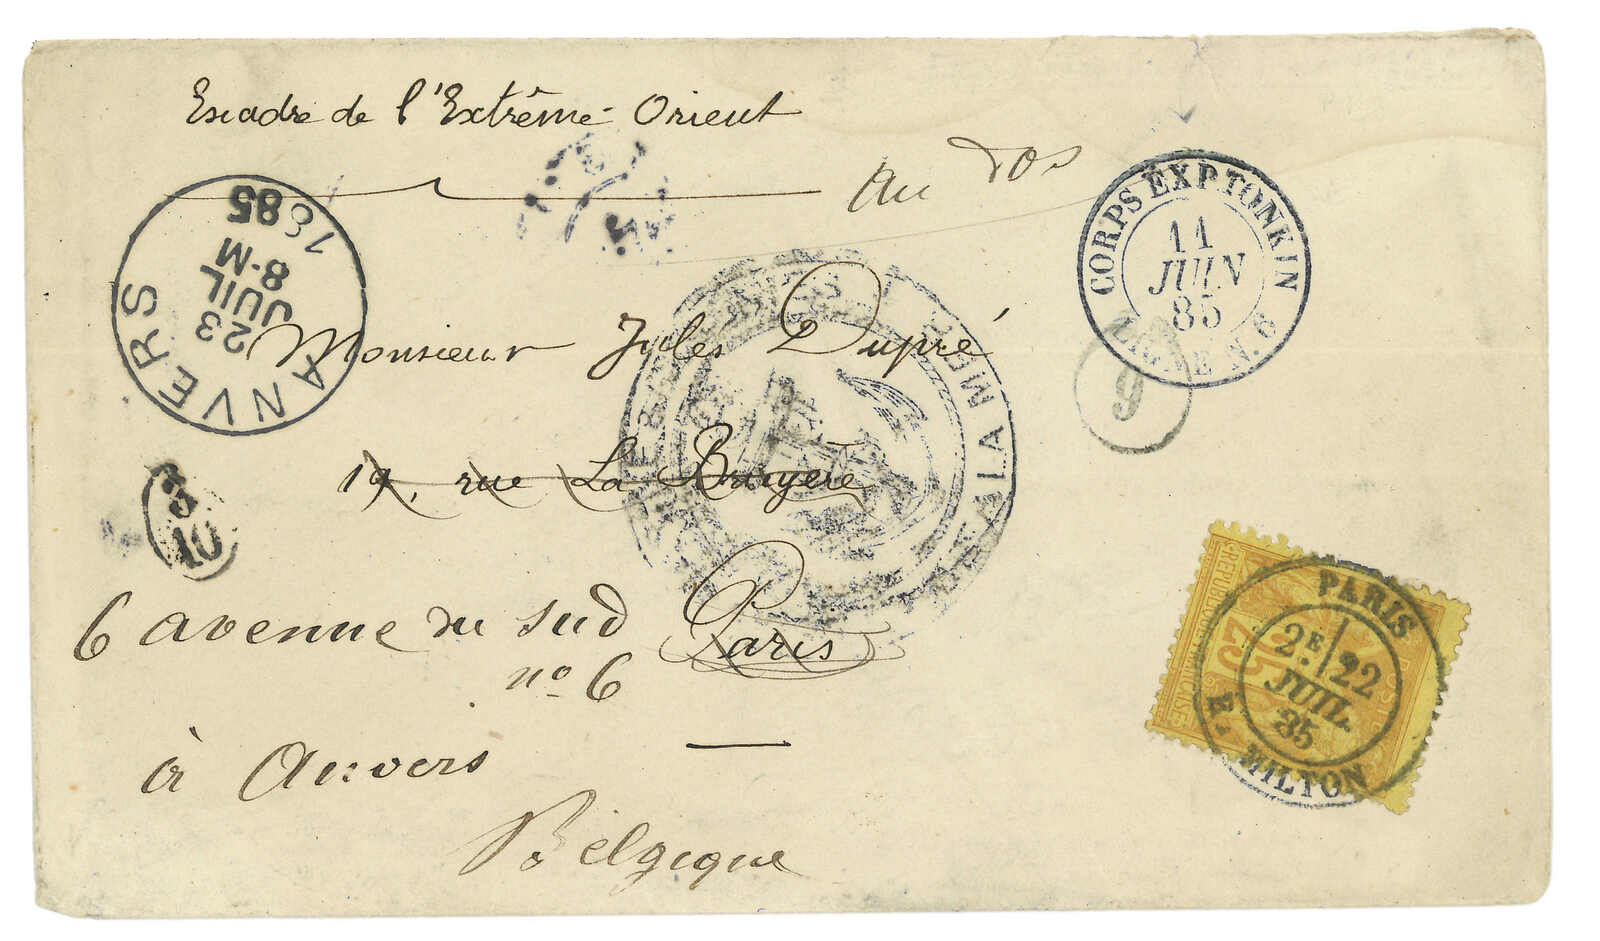 Escadre de l'Extrême-Orient
au dos
CORPS EXP. TONKIN
11
JUIN
85
LIGNE N. 6
9
ANVERS
23
JUIL
8-M
1885
Monsieur Jules Dupré
19, rue La Bruyère
Paris
A LA MER
3
10
6 avenue du sud
no 6
à Anvers
Belgique
REPUBLIQUE FRANÇAISE
25
PARIS
2E 22
JUIL.
85
R. MILTON